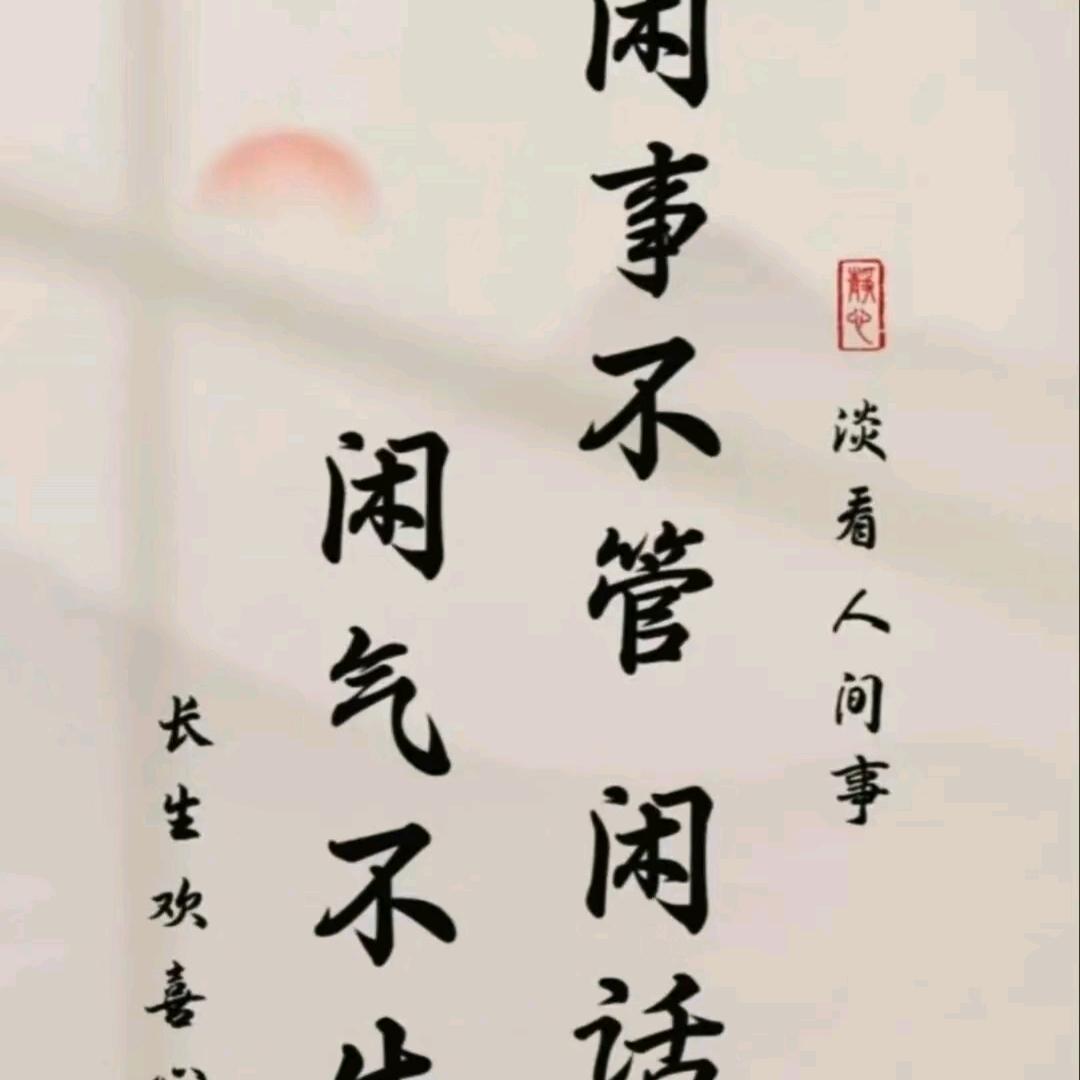 靜心
淡看人间事
闲事不管 闲话
闲气不生
长生欢喜